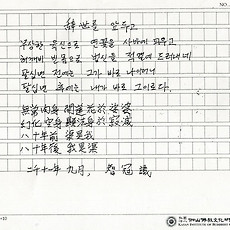 辭世를 앞두고
무상한 육신으로 연꽃을 사바에 피우고
허깨비 빈몸으로 법신을 적멸에 드러내네
팔십년 전에는 그가 바로 나이더니
팔십년 후에는 내가 바로 그이로다.
無常肉身 開蓮花於娑婆
幻化空身 顯法身於寂滅
八十年前 渠是我
八十年後 我是渠
二千十一年 九月, 智冠
NO.